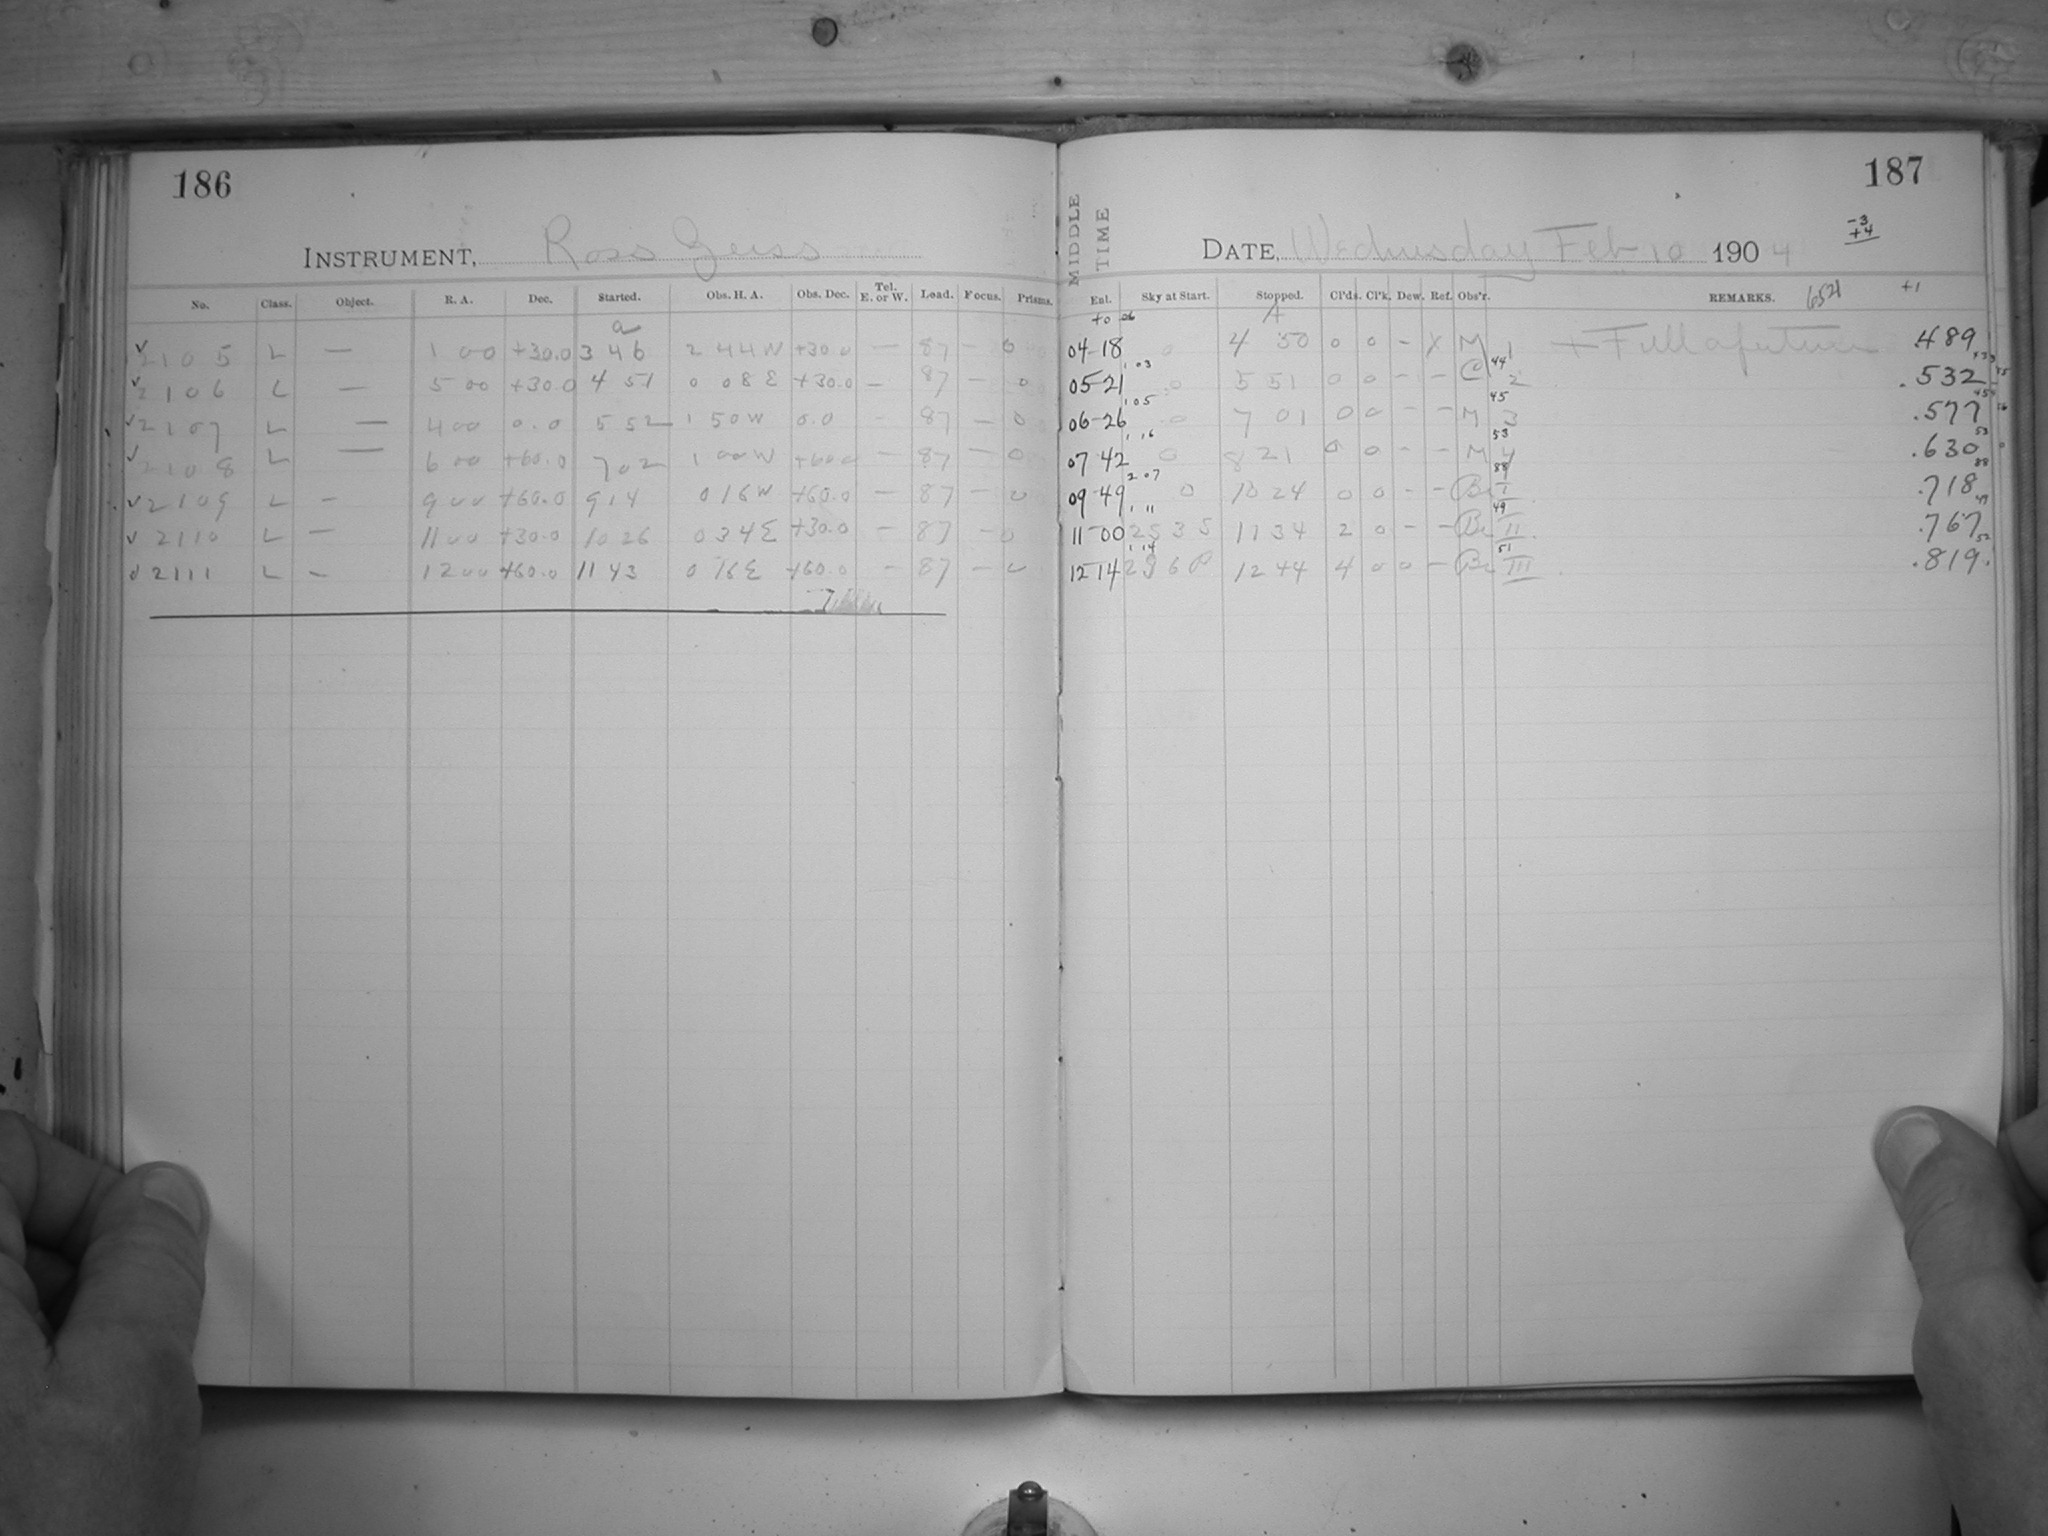 186
INSTRUMENT, Ross Zeiss
No. Class. Object. R. A. Dec. Started. Obs. H. A. Obs. Dec. Tel. E. or W. Load. Focus. Prisms.
a
✓ 2105 L — 1 00 +30.0 3 46 2 44 W +30.0 — 87 — 0
✓ 2106 L — 5 00 +30.0 4 51 0 08 E +30.0 — 87 — 0
✓ 2107 L — 4 00 0.0 5 52 1 50 W 0.0 - 87 — 0
✓ 2108 L — 6 00 +60.0 7 02 1 00 W +60.0 - 87 — 0
✓ 2109 L — 9 00 +60.0 9 14 0 16 W +60.0 — 87 — 0
✓ 2110 L — 11 00 +30.0 10 26 0 34 E +30.0 — 87 — 0
✓ 2111 L — 12 00 +60.0 11 43 0 16 E +60.0 — 87 — 0
187
MIDDLE TIME
DATE, Wednesday Feb 10 1904
-3
+4
Ent. Sky at Start. Stopped. Cl'ds. Cl'k. Dew. Ref. Obs'r. REMARKS. +1
+0 06 A
04-18 0 4 50 0 0 - X M 1 + Full aperture .489
1 03 44
05-21 0 5 51 0 0 - - C 2 .532
1 05 45
06-26 0 7 01 0 0 - - M 3 .577
1 16 53 53
07 42 0 8 21 0 0 - - M 4 .630
2 07 88 88
09-49 0 10 24 0 0 - - Br I .718
1 11 49 49
11-00 2535 11 34 2 0 - - Br II .767
1 14 51 52
12-14 12 44 4 0 0 - Br III .819